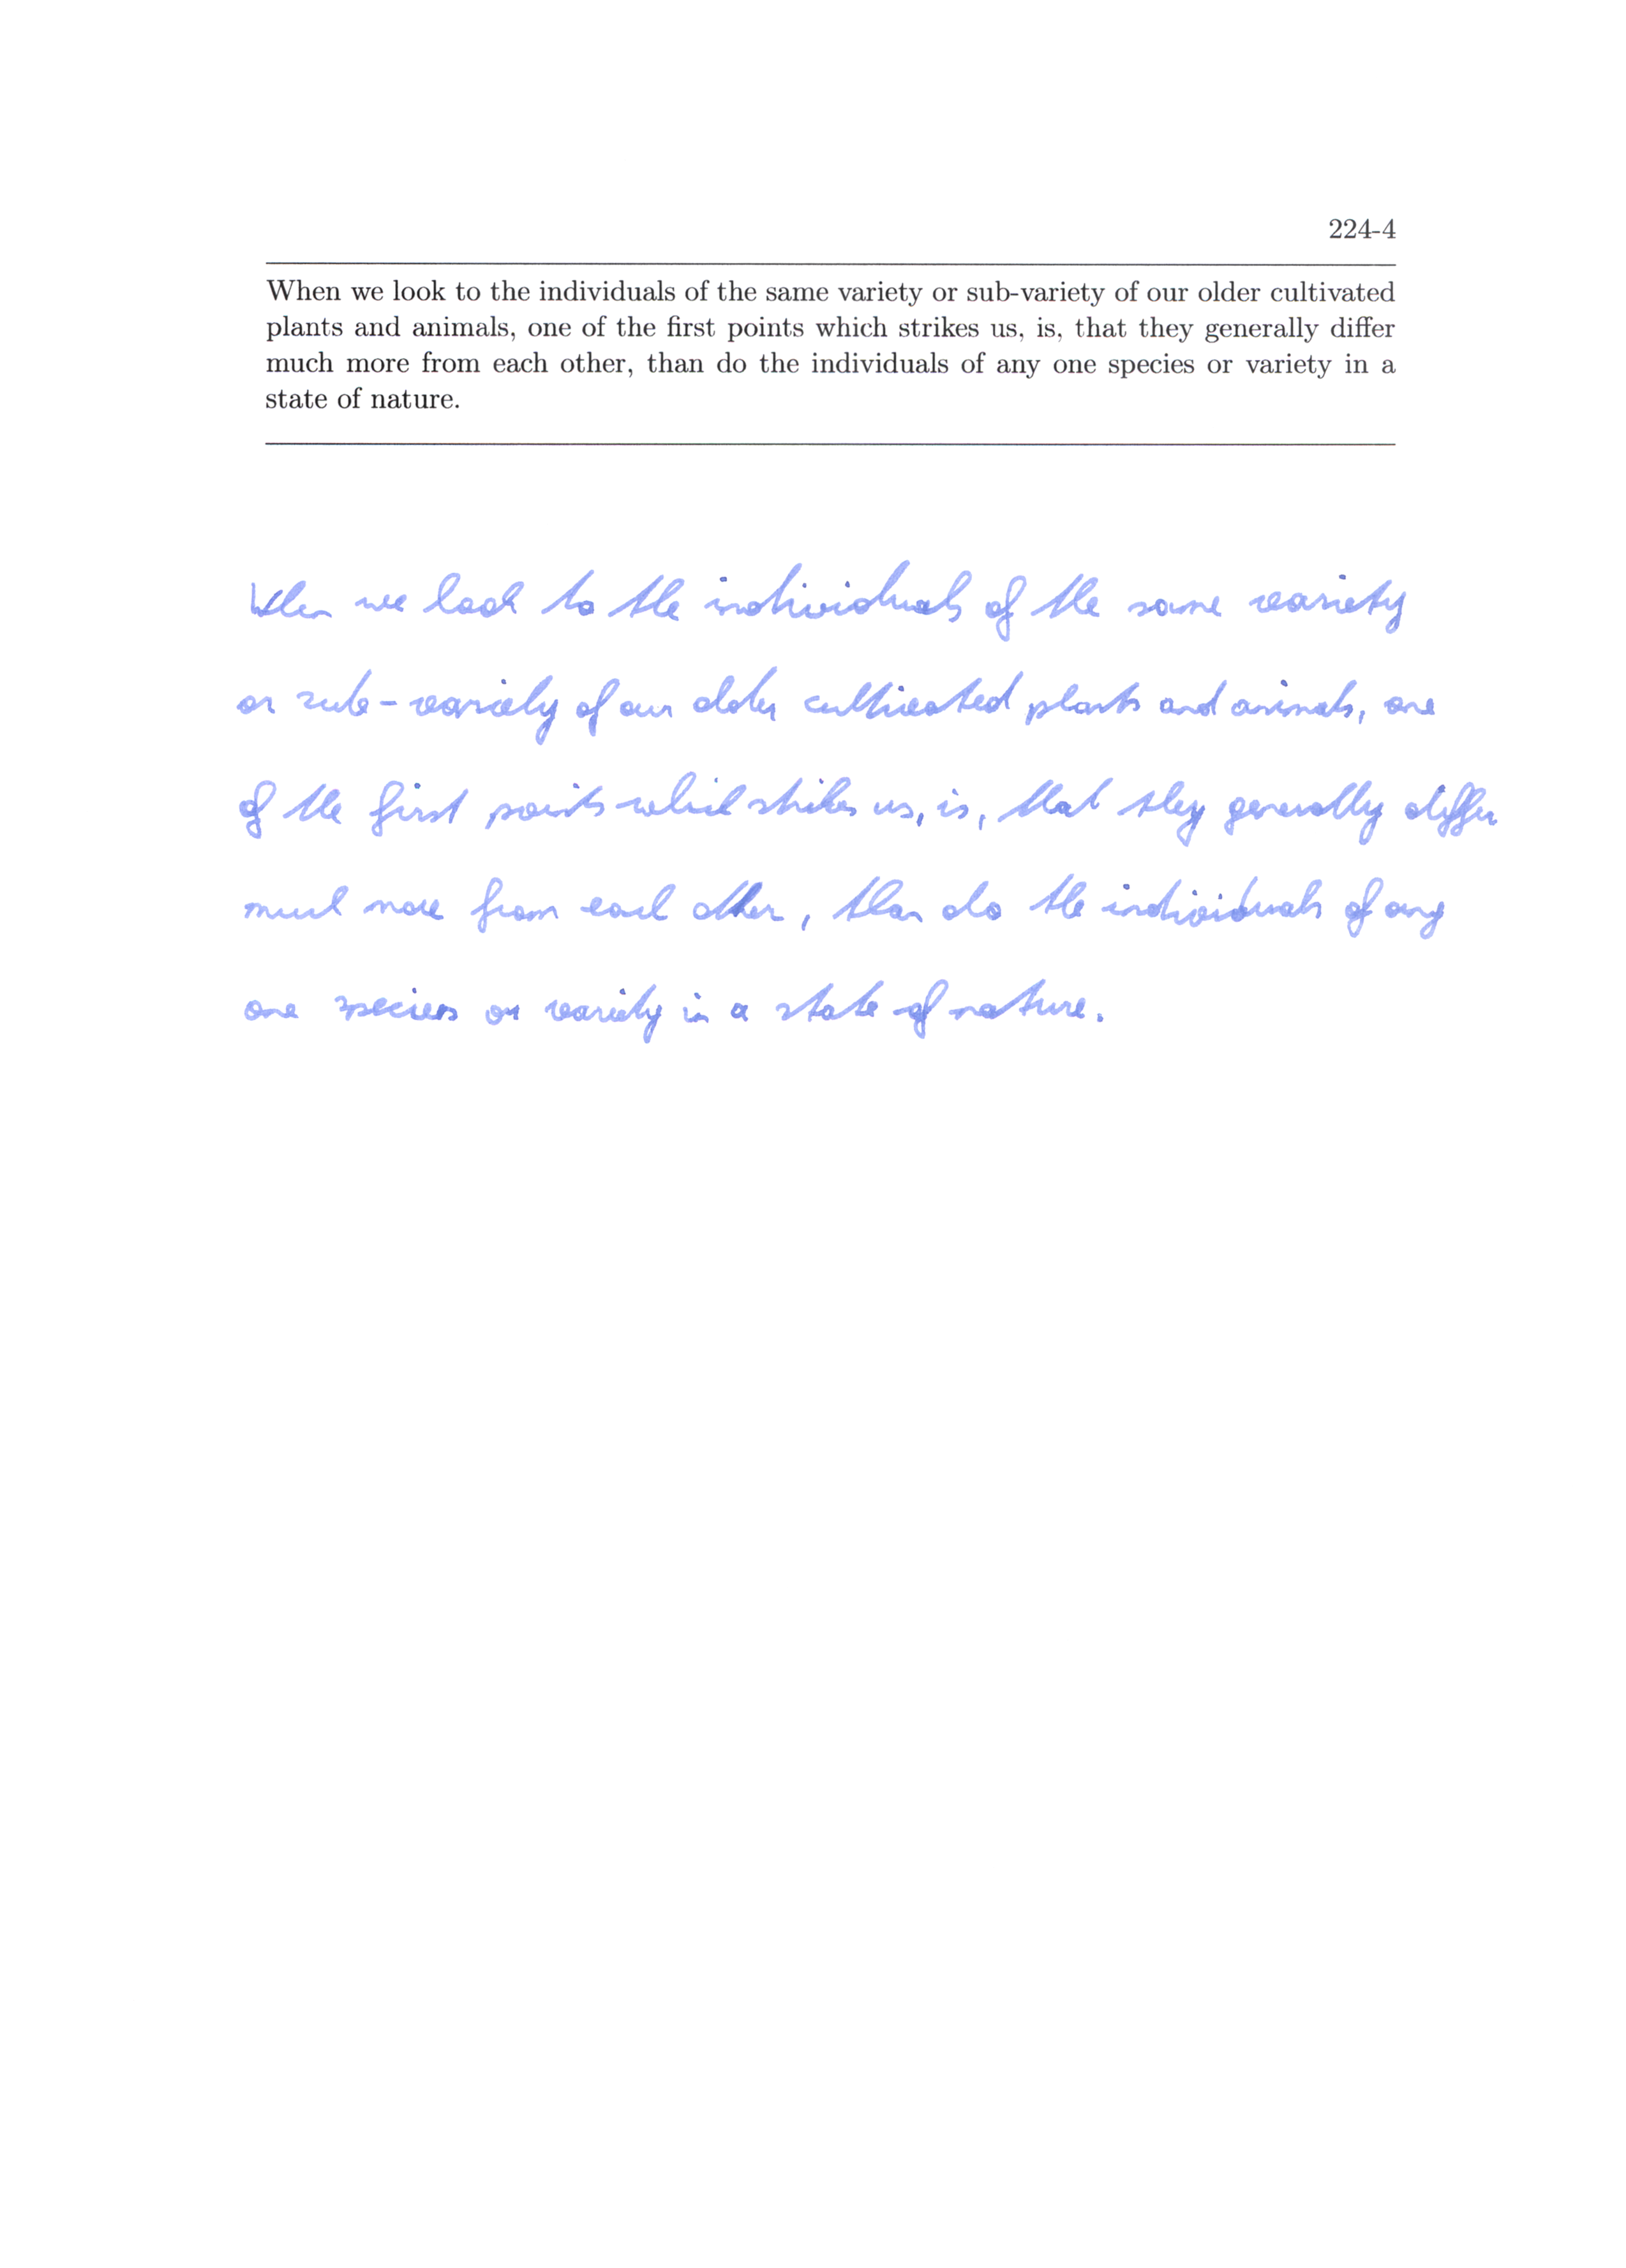 224-4
When we look to the individuals of the same variety or sub-variety of our older cultivated
plants and animals, one of the first points which strikes us, is, that they generally differ
much more from each other, than do the individuals of any one species or variety in a
state of nature.
When we look to the individuals of the same variety
or sub-variety of our older cultivated plants and animals, one
of the first points which strikes us, is, that they generally differ
much more from each other, than do the individuals of any
one species or variety in a state of nature.